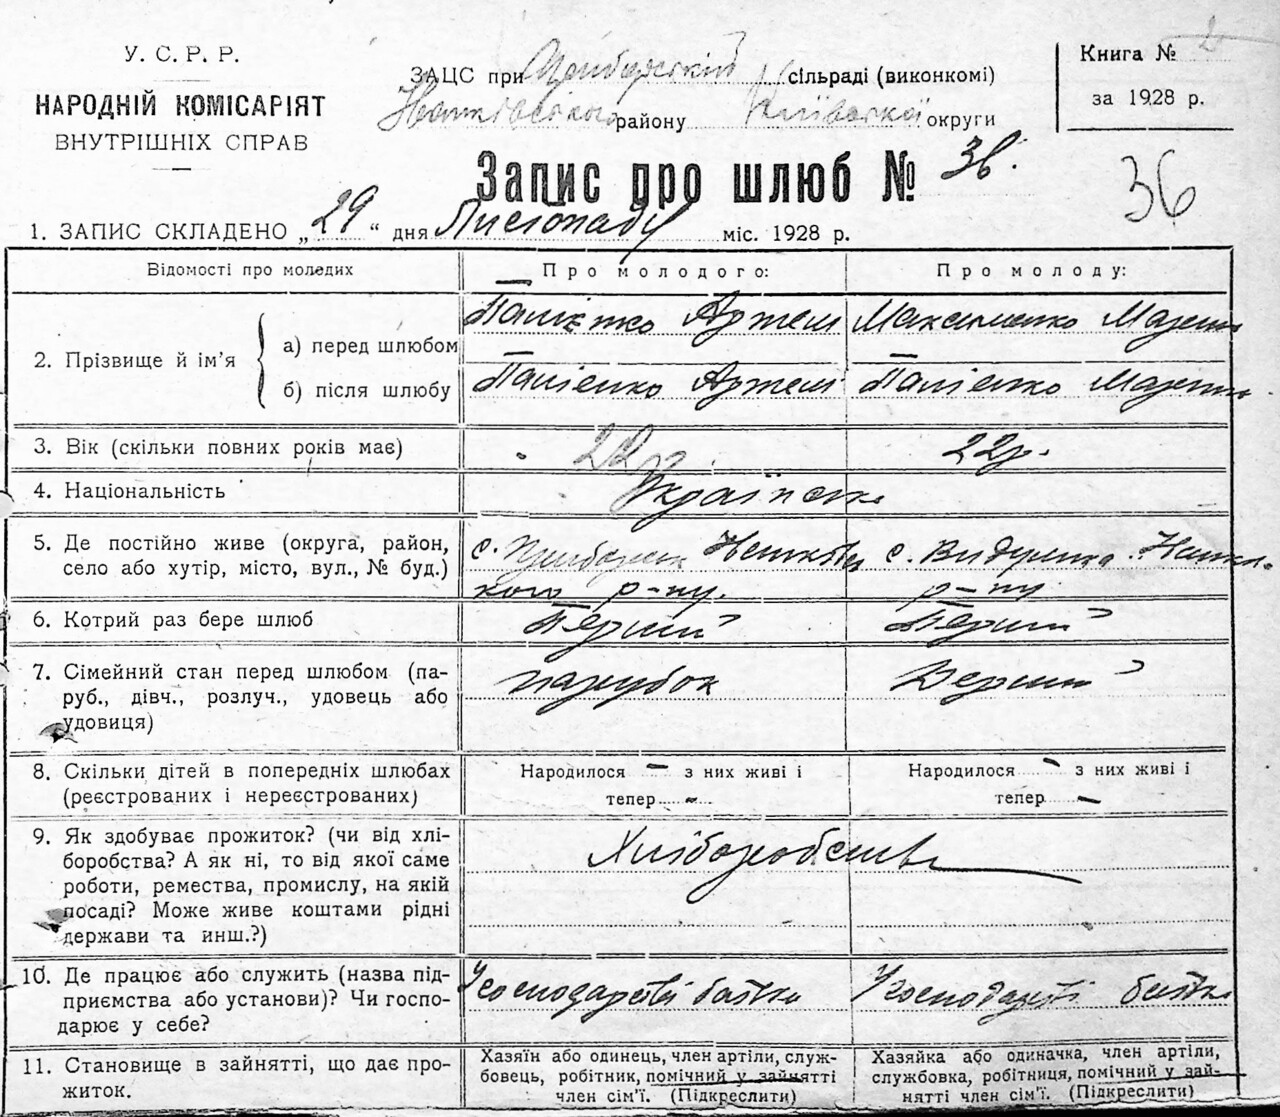 У. С. Р. Р.
НАРОДНІЙ КОМІСАРІЯТ
ВНУТРІШНІХ СПРАВ
ЗАЦС при сільраді (виконкомі)
району Київської округи
Книга №
за 1928 р.
Запис про шлюб № 36.
36
1. ЗАПИС СКЛАДЕНО „29“ дня Листопаду міс. 1928 р.
Відомості про молодих
Про молодого:
Про молоду:
2. Прізвище й ім’я
а) перед шлюбом
Артем
Максименко
б) після шлюбу
Артем
3. Вік (скільки повних років має)
22 р.
22 р.
4. Національність
Українська
5. Де постійно живе (округа, район,
село або хутір, місто, вул., № буд.)
с.
кого р-ну.
с.
р-ну
6. Котрий раз бере шлюб
Перший
Перший
7. Сімейний стан перед шлюбом (па-
руб., дівч., розлуч., удовець або
удовиця)
парубок
8. Скільки дітей в попередніх шлюбах
(реєстрованих і нереєстрованих)
Народилося – з них живі і
тепер –
Народилося – з них живі і
тепер –
9. Як здобуває прожиток? (чи від хлі-
боробства? А як ні, то від якої саме
роботи, ремества, промислу, на якій
посаді? Може живе коштами рідні
держави та инш.?)
Хліборобство
10. Де працює або служить (назва під-
приємства або установи)? Чи госпо-
дарює у себе?
У господарстві батька
У господарстві батька
11. Становище в зайнятті, що дає про-
житок.
Хазяїн або одинець, член артіли, служ-
бовець, робітник, помічний у зайнятті
член сім’ї. (Підкреслити)
Хазяйка або одиначка, член артіли,
службовка, робітниця, помічний у зай-
нятті член сім’ї. (Підкреслити)